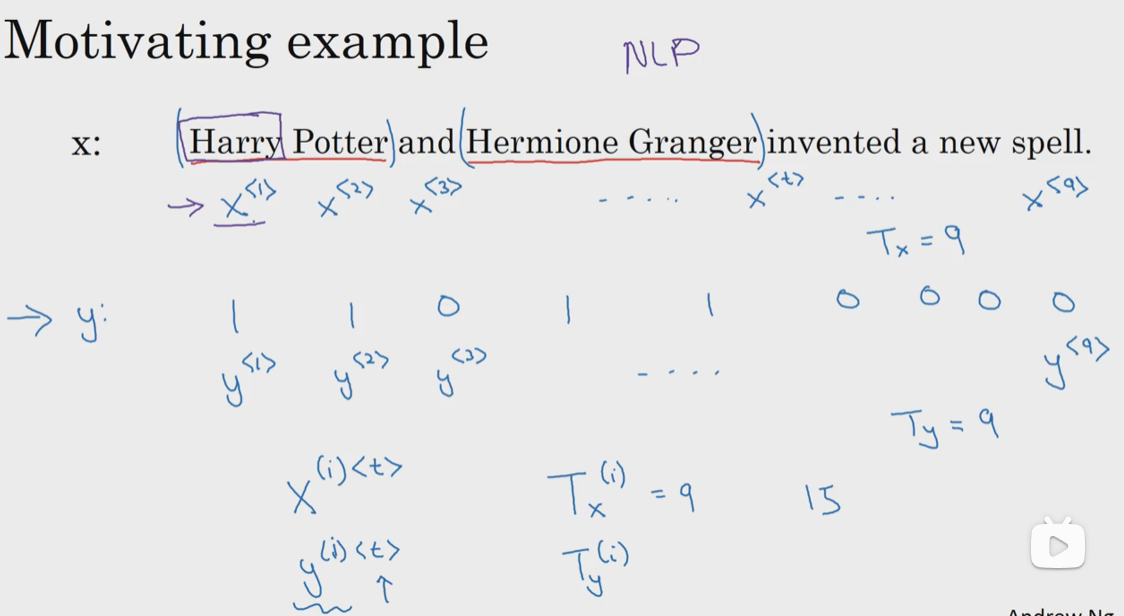 Motivating example NLP
x: Harry Potter and Hermione Granger invented a new spell.
→ x<1> x<2> x<3> ..... x<t> .... x<9>
Tx = 9
→ y: 1 1 0 1 1 0 0 0 0
y<1> y<2> y<3> .... y<9>
Ty = 9
X(i)<t> Tx(i) = 9 15
y(i)<t> Ty(i)